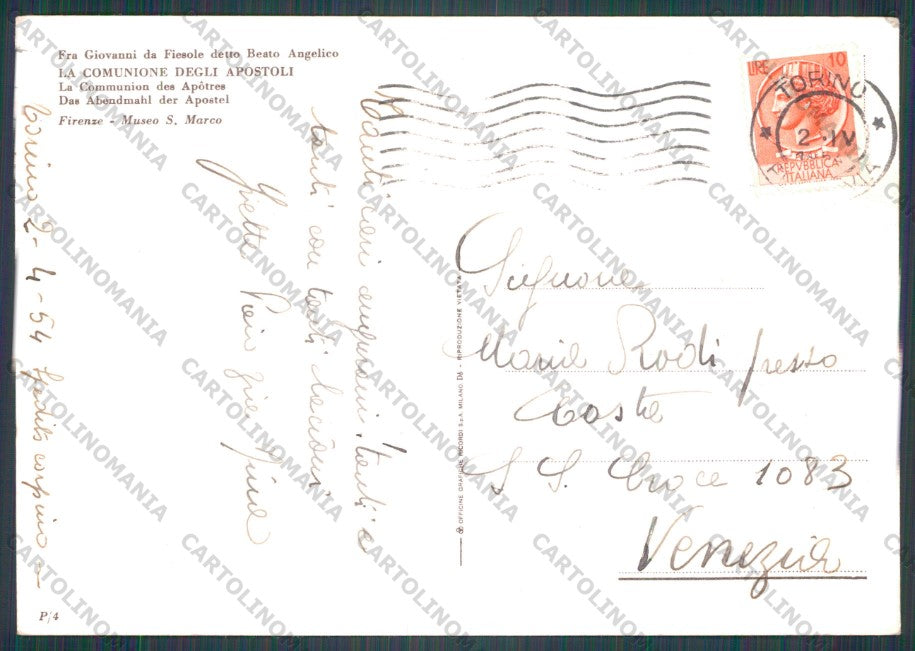 Fra Giovanni da Fiesole detto Beato Angelico
LA COMUNIONE DEGLI APOSTOLI
La Communion des Apôtres
Das Abendmahl der Apostel
Firenze - Museo S. Marco
Torino 2-4-54
Affettuosi auguri tanti e
tanti con tanti bacioni
Pier
LIRE 10
REPVBBLICA
ITALIANA
TORINO
2 - IV
Signora
Maria Rodi presso
Costa
S S. Croce 1083
Venezia
OFFICINE GRAFICHE RICORDI S.p.A. MILANO - RIPRODUZIONE VIETATA
P/4
CARTOLINOMANIA